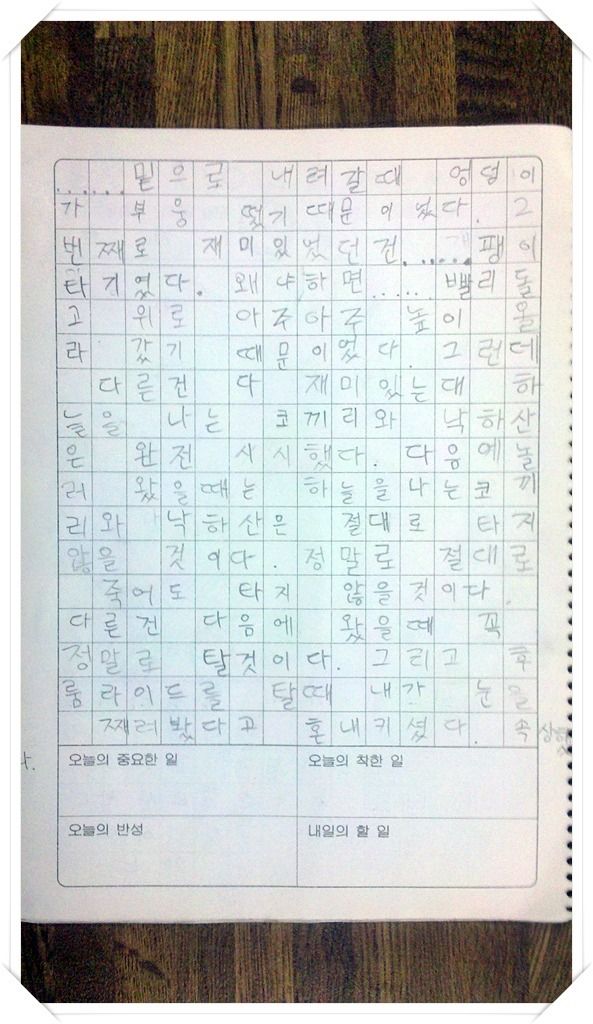 ...... 밑으로 내려갈때 엉덩이
가 부웅 떴기 때문이었다. 2
번째로 재미있었던건..... 팽이
타기였다. 왜냐하면..... 빨리돌
고 위로 아주아주 높이 올
라 갔기 때문이었다. 그런데
다른건 다 재미있는대 하
늘을 나는 코끼리와 낙하산
은 완전 시시했다. 다음에놀
러 왔을때는 하늘을나는코끼
리와 낙하산은 절대로 타지
않을 것이다. 정말로 절대로
죽어도 타지 않을것이다.
다른건 다음에 왔을때 꼭
정말로 탈것이다. 그리고 후
룸라이드를 탈때 내가 눈을
째려봤다고 혼내키셨다. 속상했
다.
오늘의 중요한 일 오늘의 착한 일
오늘의 반성 내일의 할 일